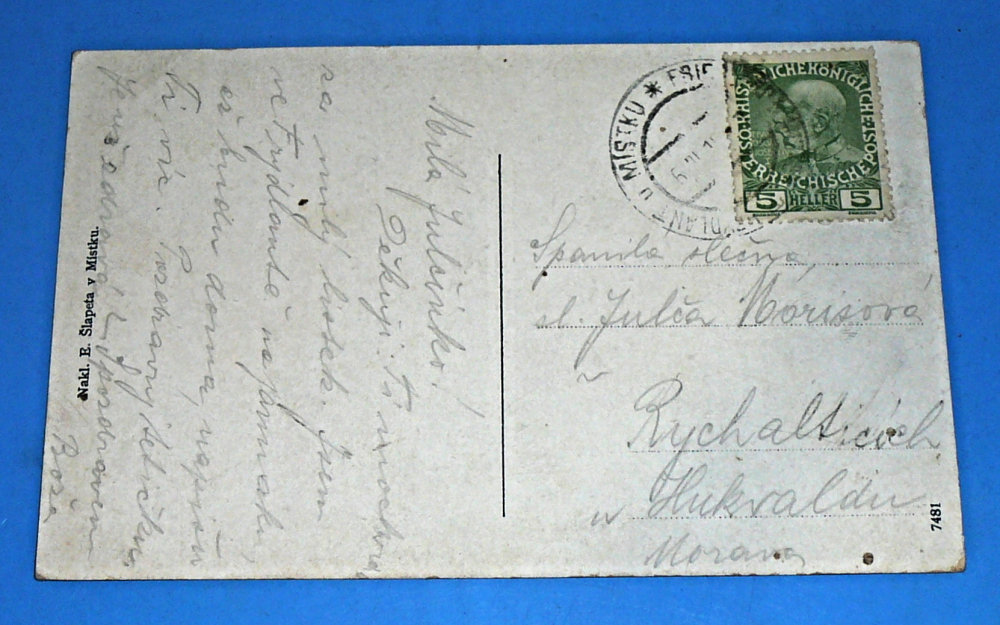 Milá Julčinko!
Děkuji Ti mnohokrá
za milý lístek. Jsem
ve Frýdlantě na prima,
až budu doma, napíšu
Ti víc. Pozdravuj tetičku
Jsi zdráva? S pozdravem
Boža
Nakl. E. Šlapeta v Místku.
FRIE
FRÝDLANT U MÍSTKU *
KAIS KÖNIGLICHE ÖSTERREICHISCHE POST
5 HELLER 5
Spanilá slečna
sl. Julča Mórisová
v
Rychalticích
u Hukvaldu
Morava
7481